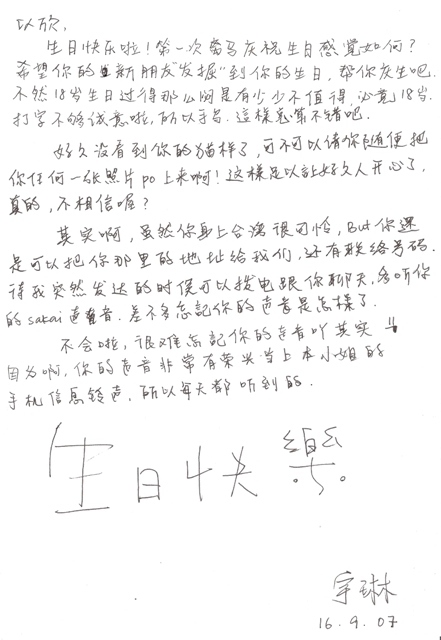 以欣,
生日快乐啦！第一次离马庆祝生日感觉如何？
希望你的新朋友"发掘"到你的生日，帮你庆生吧.
不然18岁生日过得那么闷是有少少不值得，必竟18岁.
打字不够诚意啦，所以手写. 這樣总算不错吧.
好久没看到你的猫样了，可不可以请你随便把
你任何一张照片po上来啊！这樣足以让好久人开心了，
真的，不相信喔？
其实啊，虽然你身上台湾很可怕，But你还
是可以把你那里的地址给我们，还有联络号码.
待我突然发达的时侯可以拨电跟你聊天，多听你
的sakai声音. 差不多忘記你的声音是怎樣了.
不会啦，很难忘記你的声音吖其实
因为啊，你的声音非常有荣兴当上本小姐的
手机信息铃声，所以每天都听到的.
生日快樂
宇琳
16.9.07